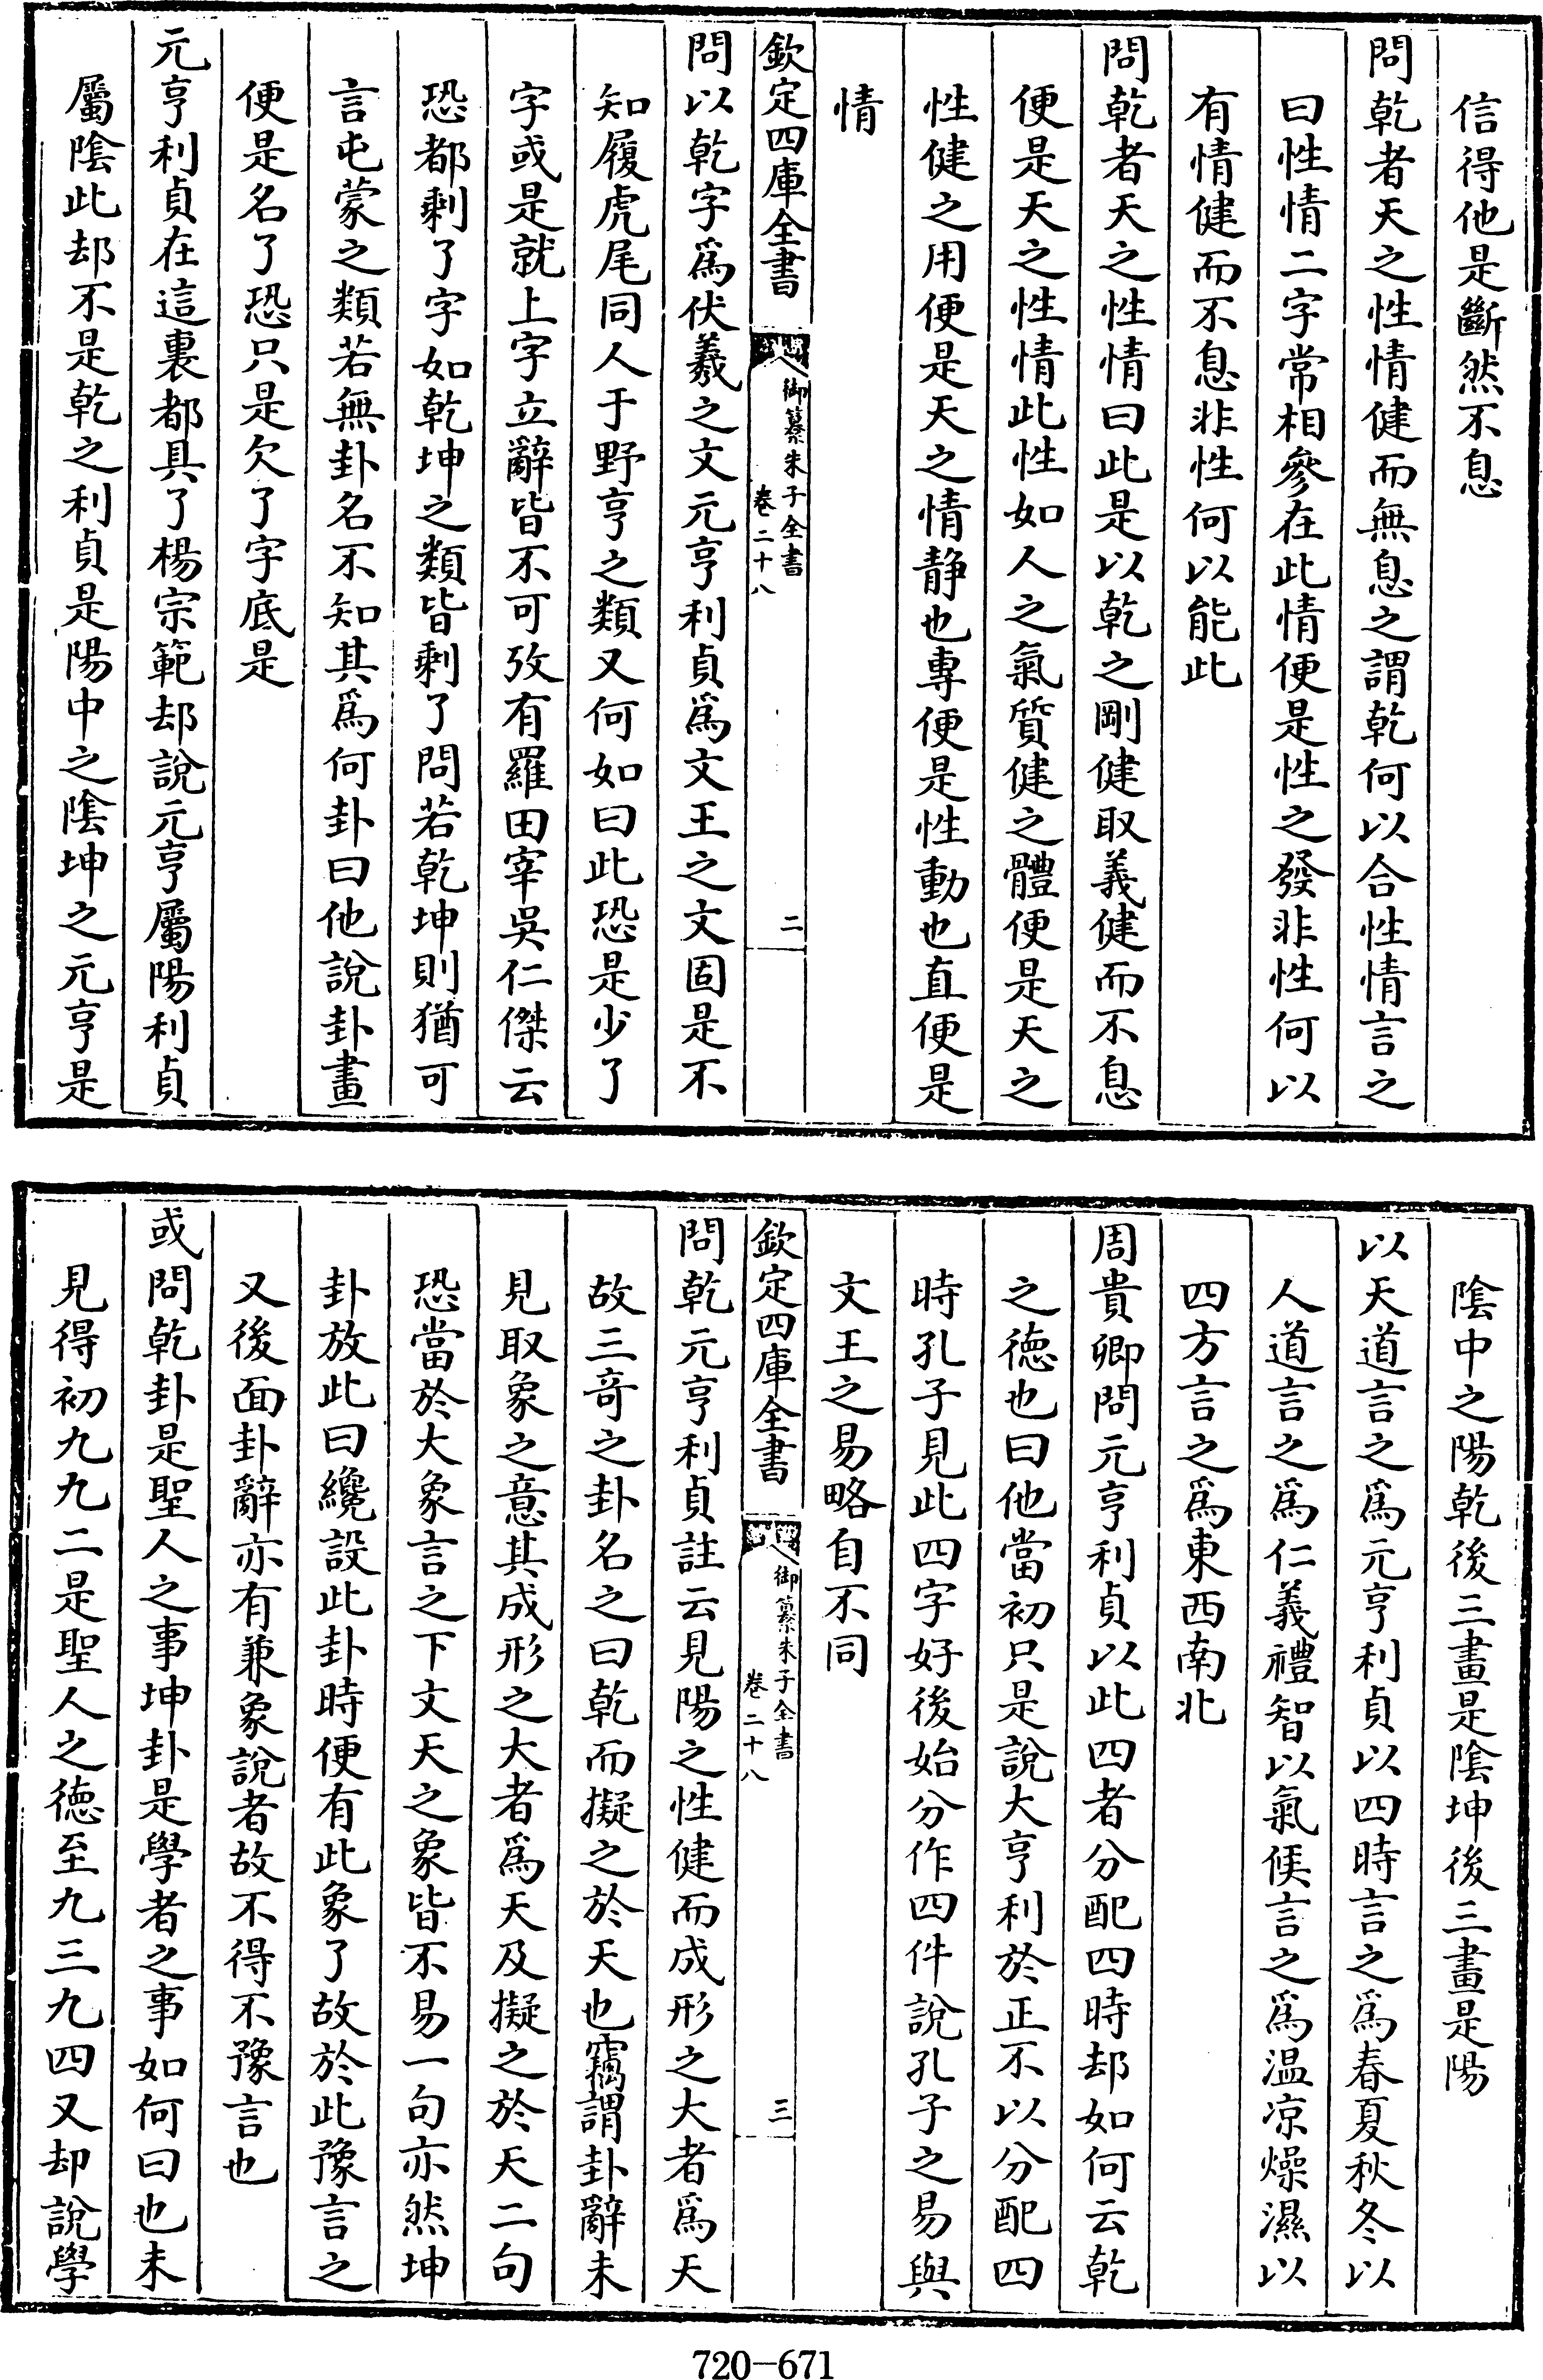 信得他是斷然不息
問乾者天之性情健而無息之謂乾何以合性情言之
曰性情二字常相參在此情便是性之發非性何以
有情健而不息非性何以能此
問乾者天之性情曰此是以乾之剛健取義健而不息
便是天之性情此性如人之氣質健之體便是天之
性健之用便是天之情静也專便是性動也直便是
情
欽定四庫全書
御纂朱子全書
卷二十八
二
問以乾字爲伏羲之文元亨利貞爲文王之文固是不
知履虎尾同人于野亨之類又何如曰此恐是少了
字或是就上字立辭皆不可攷有羅田宰吳仁傑云
恐都剩了字如乾坤之類皆剩了問若乾坤則猶可
言屯蒙之類若無卦名不知其爲何卦曰他說卦畫
便是名了恐只是欠了字底是
元亨利貞在這裏都具了楊宗範却說元亨屬陽利貞
屬隂此却不是乾之利貞是陽中之隂坤之元亨是
隂中之陽乾後三畫是隂坤後三畫是陽
以天道言之爲元亨利貞以四時言之爲春夏秋冬以
人道言之爲仁義禮智以氣候言之爲温凉燥濕以
四方言之爲東西南北
周貴卿問元亨利貞以此四者分配四時却如何云乾
之徳也曰他當初只是說大亨利於正不以分配四
時孔子見此四字好後始分作四件說孔子之易與
文王之易略自不同
欽定四庫全書
御纂朱子全書
卷二十八
三
問乾元亨利貞註云見陽之性健而成形之大者爲天
故三竒之卦名之曰乾而擬之於天也竊謂卦辭未
見取象之意其成形之大者爲天及擬之於天二句
恐當於大象言之下文天之象皆不易一句亦然坤
卦放此曰纔設此卦時便有此象了故於此豫言之
又後面卦辭亦有兼象說者故不得不豫言也
或問乾卦是聖人之事坤卦是學者之事如何曰也未
見得初九九二是聖人之徳至九三九四又却說學
720-671